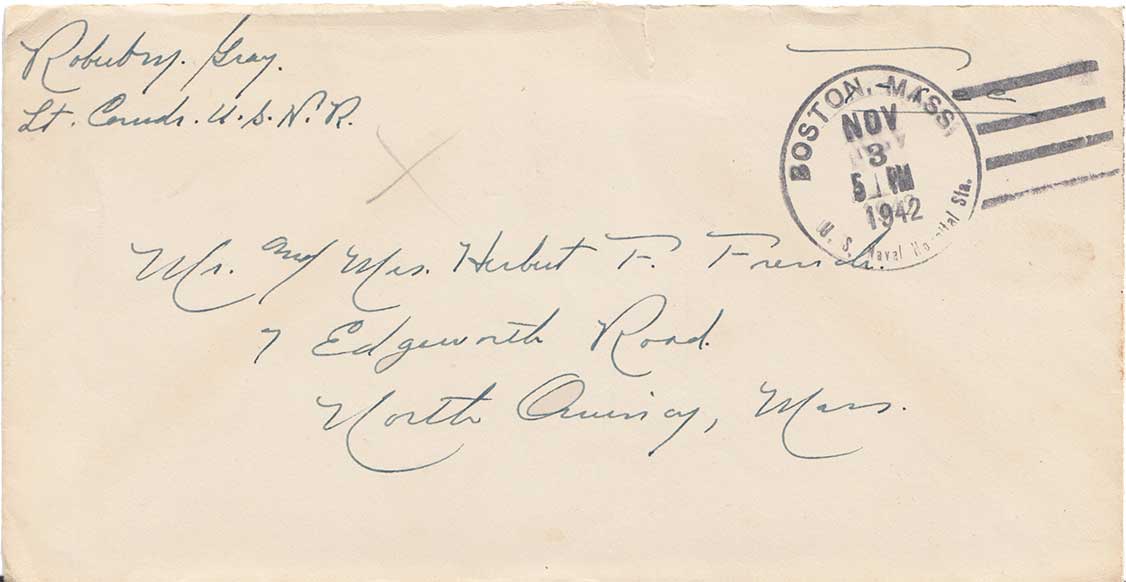 Robert M. Gray.
Lt. Comdr. U.S.N.R.
BOSTON, MASS.
NOV
3
5 PM
1942
U. S. Naval Hospital Sta.
Free
Mr. and Mrs. Herbert F. French.
7 Edgeworth Road.
North Quincy, Mass.